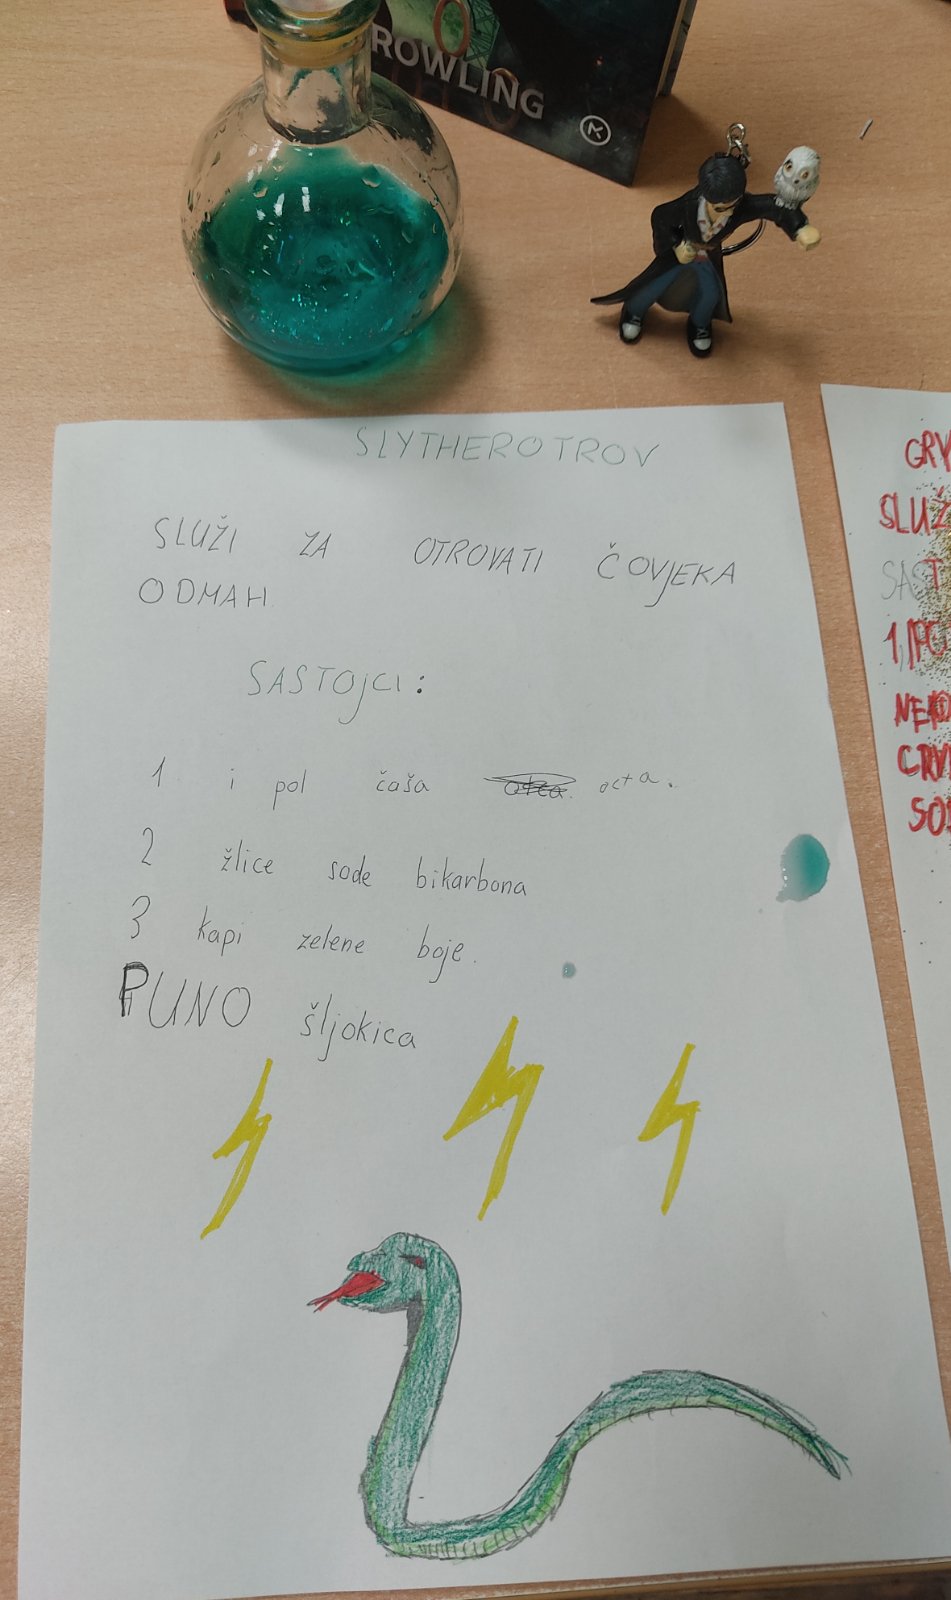 ROWLING
SLYTHEROTROV
SLUŽI ZA OTROVATI ČOVJEKA
ODMAH
SASTOJCI:
1 i pol čaša octa.
2 žlice sode bikarbona
3 kapi zelene boje.
PUNO šljokica
GRY
SLUŽ
SAST
1/PO
NEK
CRV
SOD